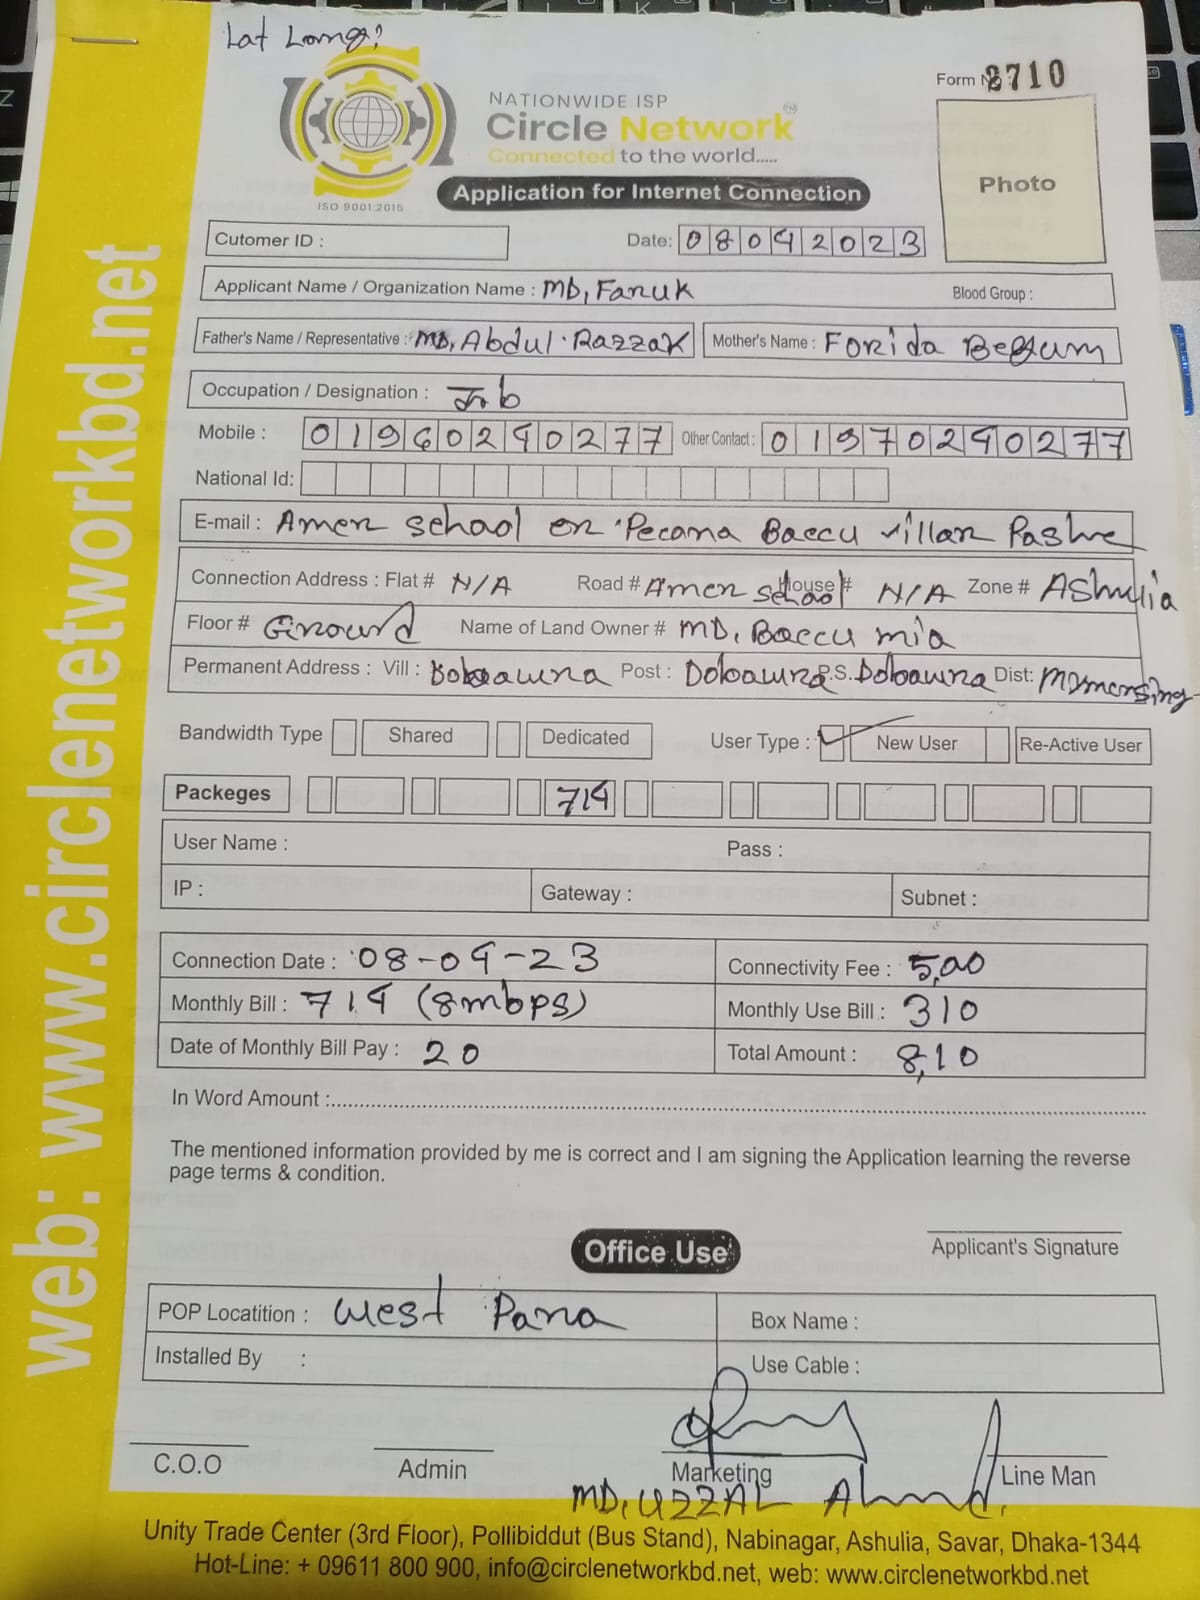 Lat Long:
Form No 2710
NATIONWIDE ISP
Circle Network
Connected to the world.....
ISO 9001:2015
Application for Internet Connection
Photo
Cutomer ID :
Date: 08042023
Applicant Name / Organization Name : MD, Faruk
Blood Group :
Father's Name / Representative : MD, Abdul Razzak
Mother's Name : Forida Begum
Occupation / Designation : Job
Mobile : 01960240277
Other Contact : 01970240277
National Id:
E-mail : Amen school er Pecana Baccu villar Pashe
Connection Address : Flat # N/A Road # Amen school House # N/A Zone # AShulia
Floor # Ground Name of Land Owner # MD, Baccu mia
Permanent Address : Vill : Dobawra Post : Dobawra P.S. Dobawra Dist: Mymensing
Bandwidth Type Shared Dedicated User Type : New User Re-Active User
Packeges 714
User Name :
Pass :
IP :
Gateway :
Subnet :
Connection Date : 08-04-23
Connectivity Fee : 5,00
Monthly Bill : 714 (8mbps)
Monthly Use Bill : 310
Date of Monthly Bill Pay : 20
Total Amount : 8,10
In Word Amount :
The mentioned information provided by me is correct and I am signing the Application learning the reverse
page terms & condition.
Applicant's Signature
Office Use
POP Locatition : West Para
Box Name :
Installed By :
Use Cable :
C.O.O
Admin
Marketing
Line Man
MD, UZZAL Ahmed.
Unity Trade Center (3rd Floor), Pollibiddut (Bus Stand), Nabinagar, Ashulia, Savar, Dhaka-1344
Hot-Line: + 09611 800 900, info@circlenetworkbd.net, web: www.circlenetworkbd.net
web: www.circlenetworkbd.net